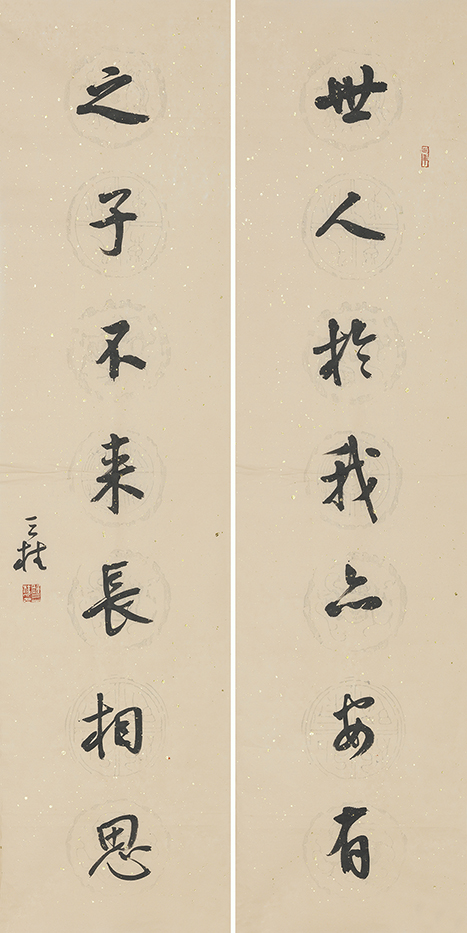 世人於我亦安有
之子不来長相思
三桂